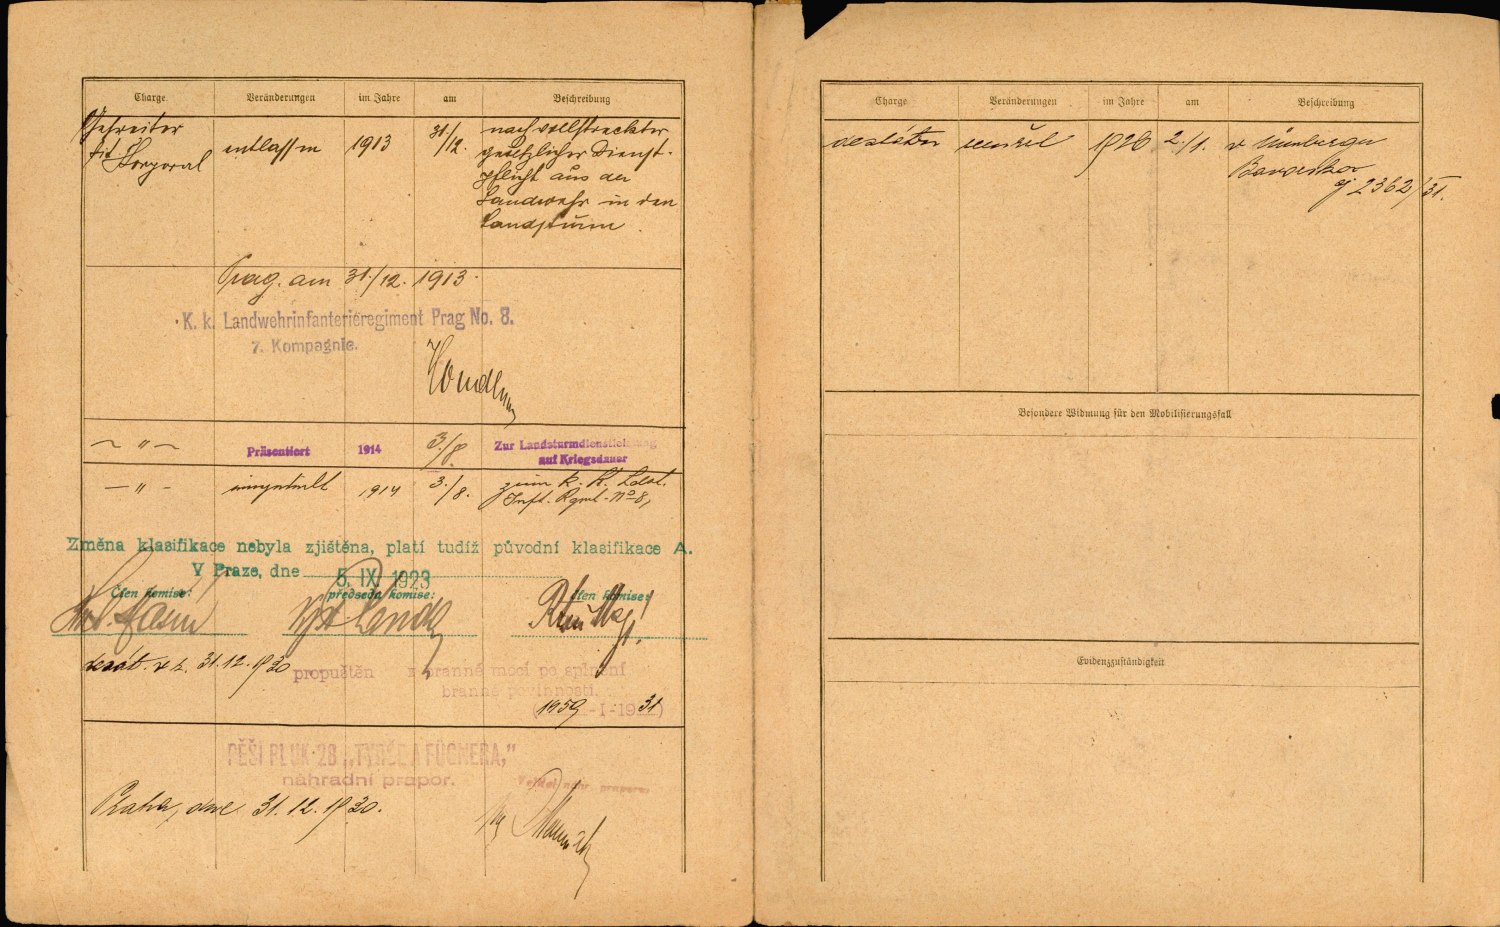 Charge Veränderungen im Jahre am Beschreibung
Gefreiter entlassen 1913 31./12. nach vollstreckter
tit. Korporal gesetzlicher Dienst-
pflicht aus der
Landwehr in den
Landsturm
Prag. am 31./12. 1913.
K. k. Landwehrinfanterieregiment Prag No. 8.
7. Kompagnie.
— " — Präsentiert 1914 3./8. Zur Landsturmdienstleistung
auf Kriegsdauer
— " — eingeteilt 1914 3./8. zum k. k. Ldst.
Inft. Rgmt. No 8,
Změna klasifikace nebyla zjištěna, platí tudíž původní klasifikace A.
V Praze, dne 5. IX. 1923
Člen komise: předseda komise: člen komise:
31. 12. 1930 propuštěn z branné moci po splnění
branné povinnosti.
(1959-I-1931)
PĚŠÍ PLUK 28 „TYRŠE A FÜGNERA,"
náhradní prapor. Velitel náhr. praporu
Praha, dne 31. 12. 1930.
Charge Veränderungen im Jahre am Beschreibung
desátník zemřel 1926 2./1. v Nürnbergu
Bavorsko
čj 2362/31.
Besondere Widmung für den Mobilisierungsfall
Evidenzzuständigkeit